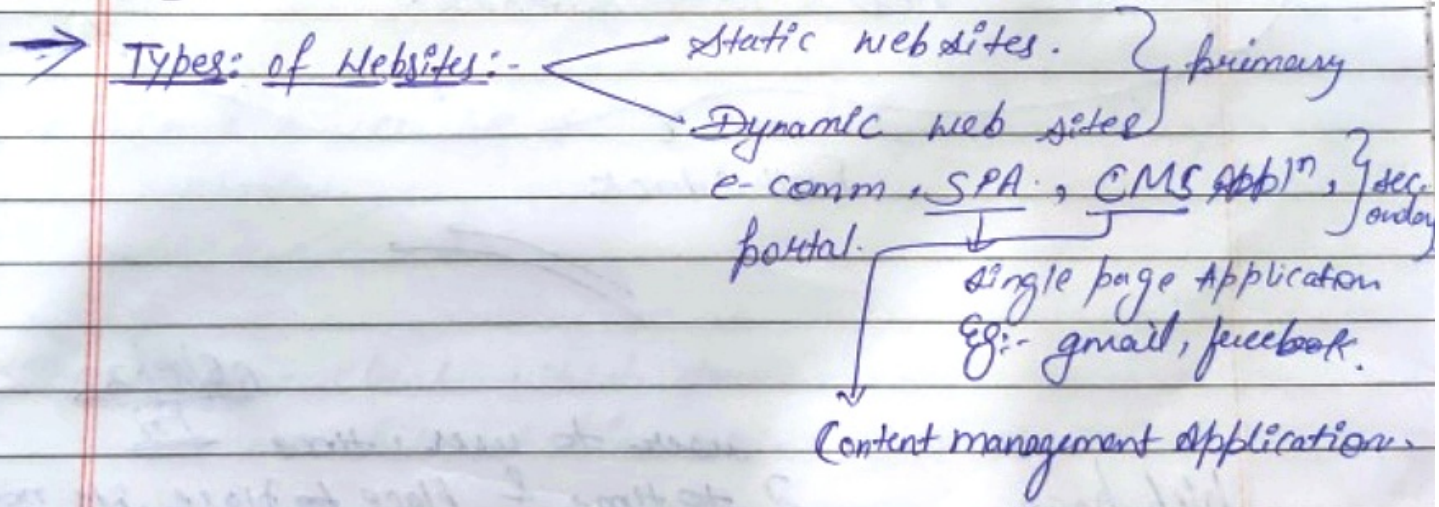 → Types: of Websites:-
Static web sites. } primary
Dynamic web sites
e-comm, SPA, CMS Appln, } sec.
ondary
portal.
single page Application
Eg:- gmail, facebook.
Content management Application.